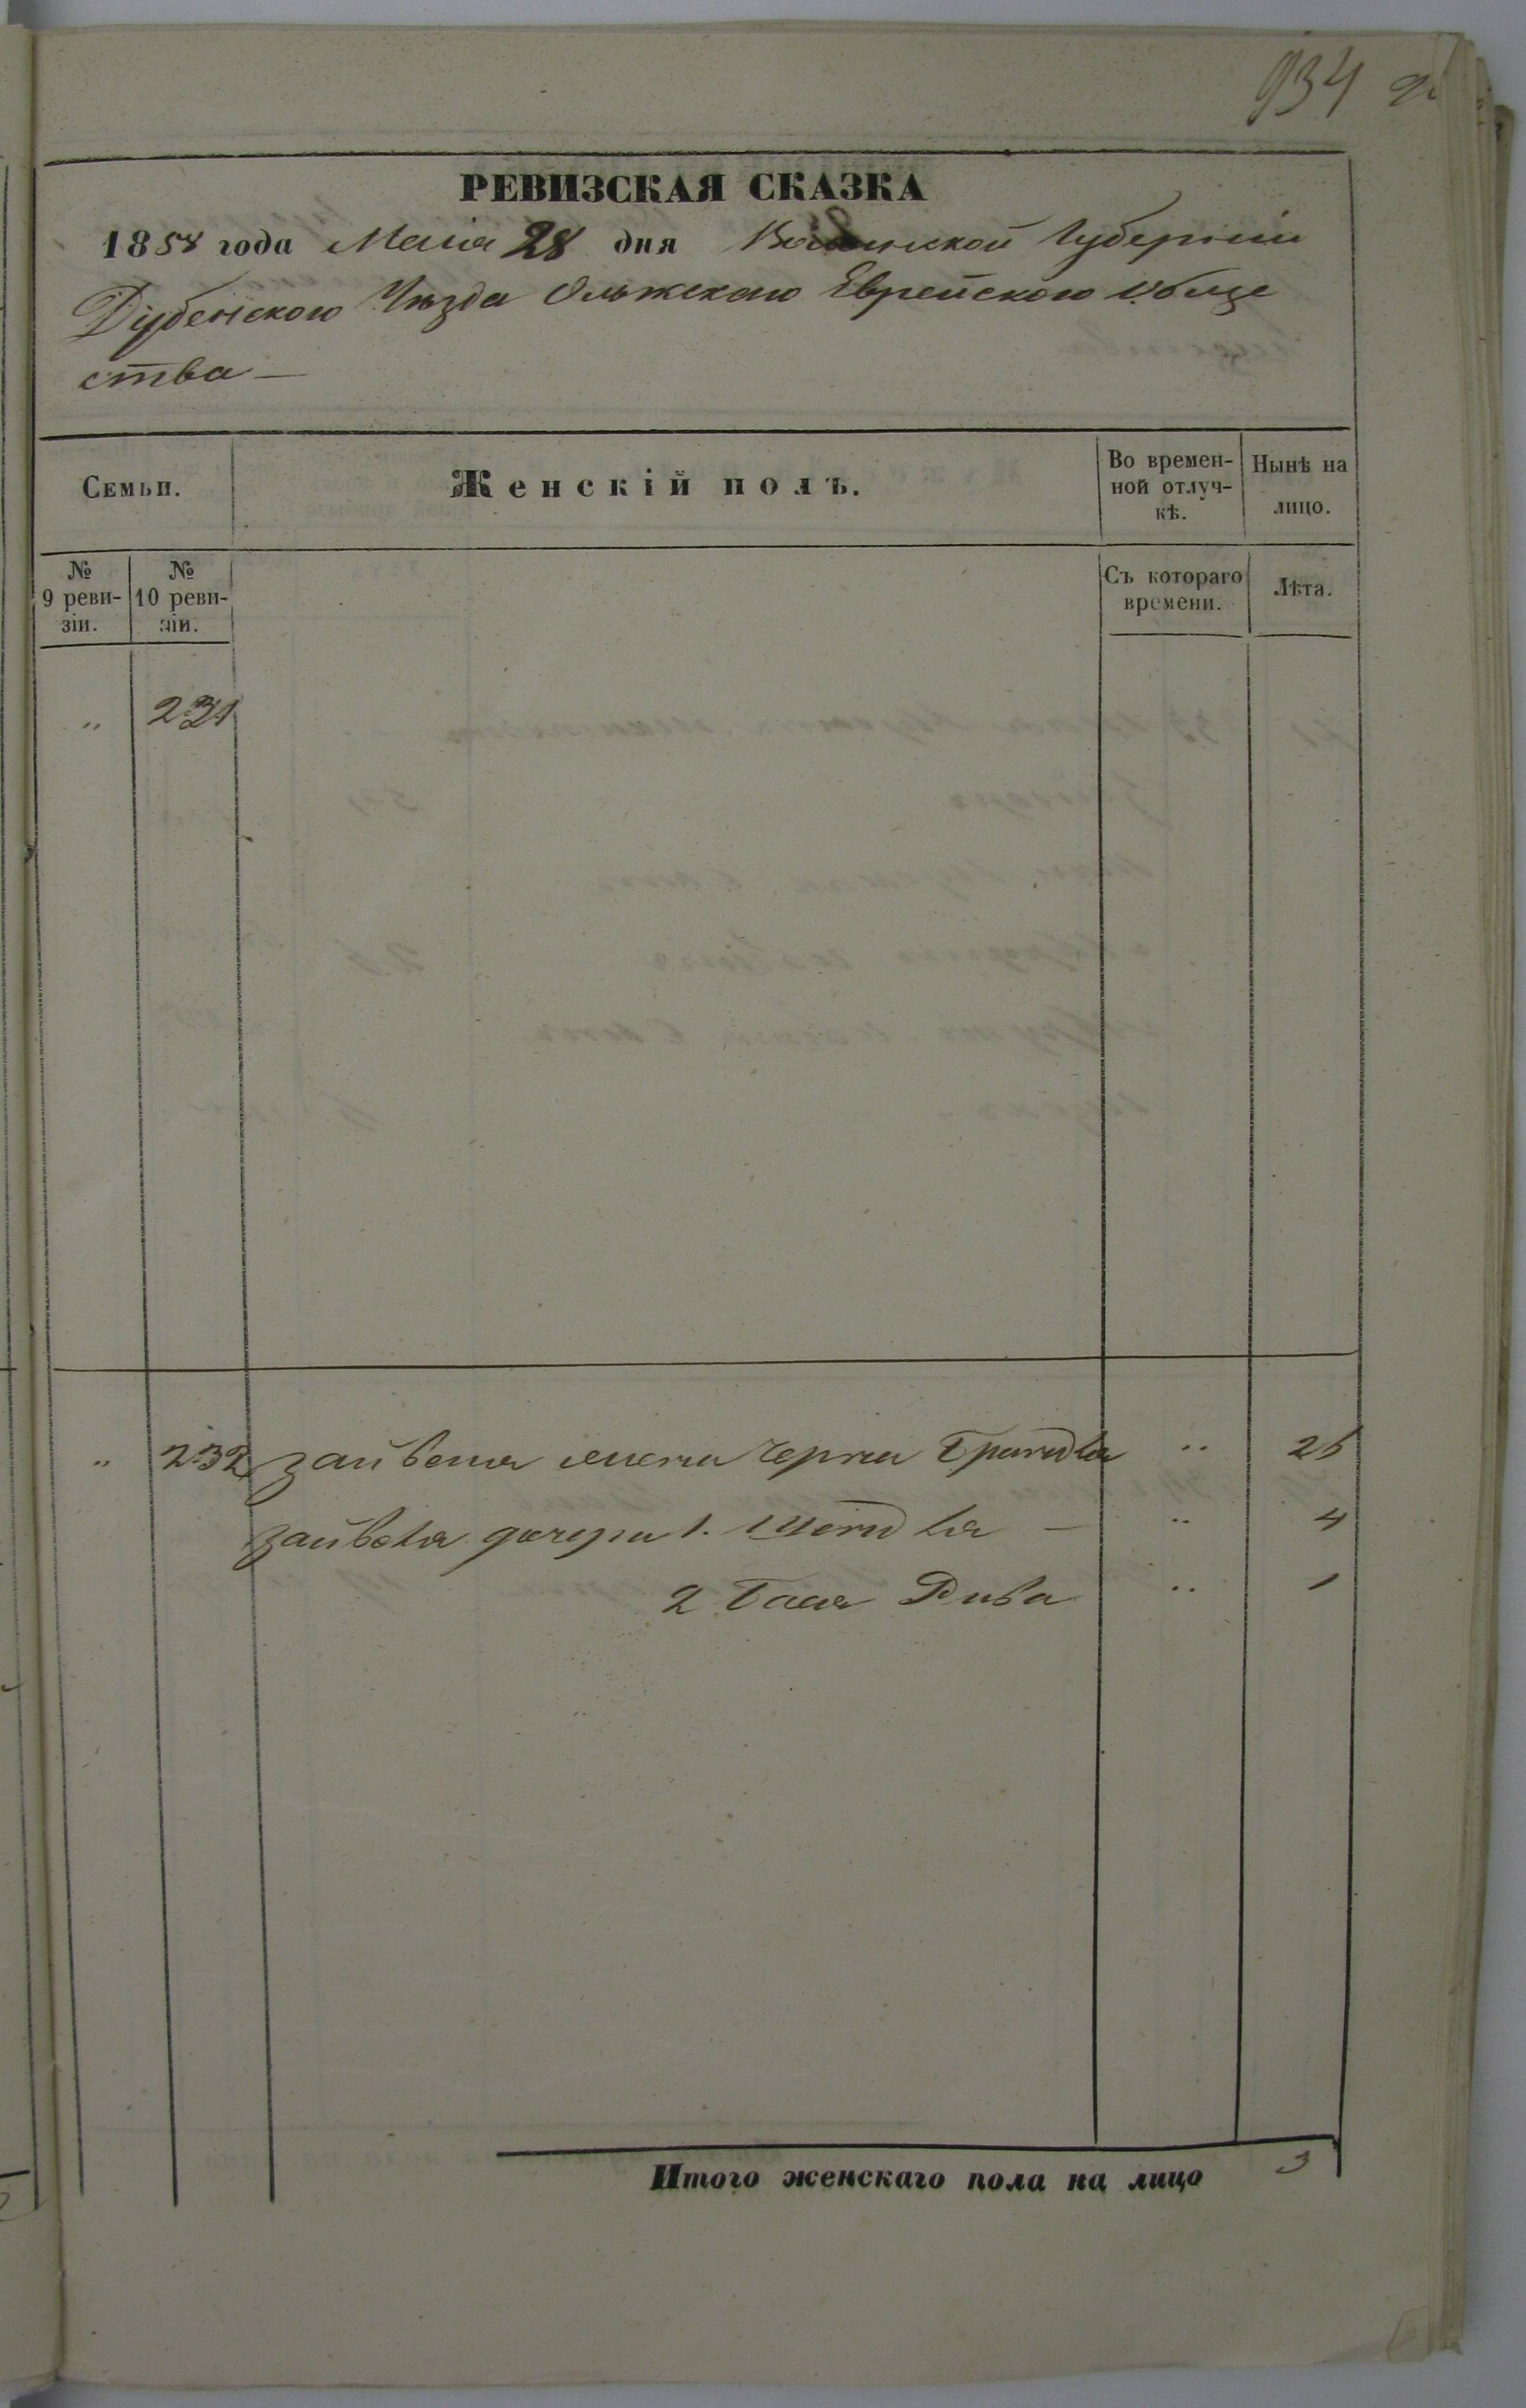 934
РЕВИЗСКАЯ СКАЗКА
1858 года Маiя 28 дня Волынской Губернiи
Дубенского Уѣзда Олыжскаго Еврейского Обще
ства —
Семьи.
Женскiй полъ.
Во времен-
ной отлуч-
кѣ.
Нынѣ на
лицо.
№
9 реви-
зiи.
№
10 реви-
зiи.
Съ котораго
времени.
Лѣта.
„ 231
„ 232 жена Черна „ 25
дочери 1. — „ 4
2 Рива „ 1
Итого женскаго пола на лицо 3